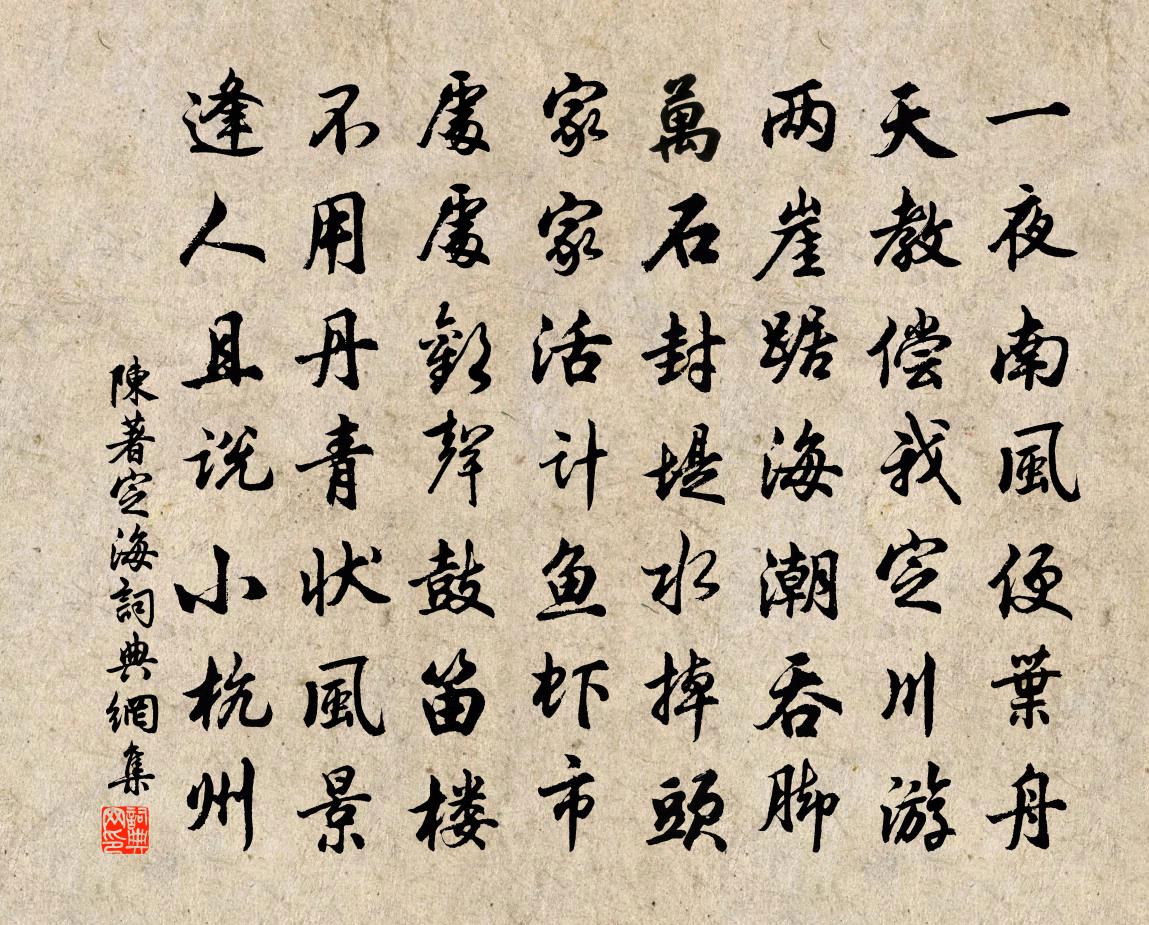 一夜南風便葉舟
天教偿我定川游
两崖踞海潮吞脚
萬石封堤水掉頭
家家活计鱼虾市
處處歡聲鼓笛楼
不用丹青状風景
逢人且说小杭州
陳著定海詞典網集
詞典
网印